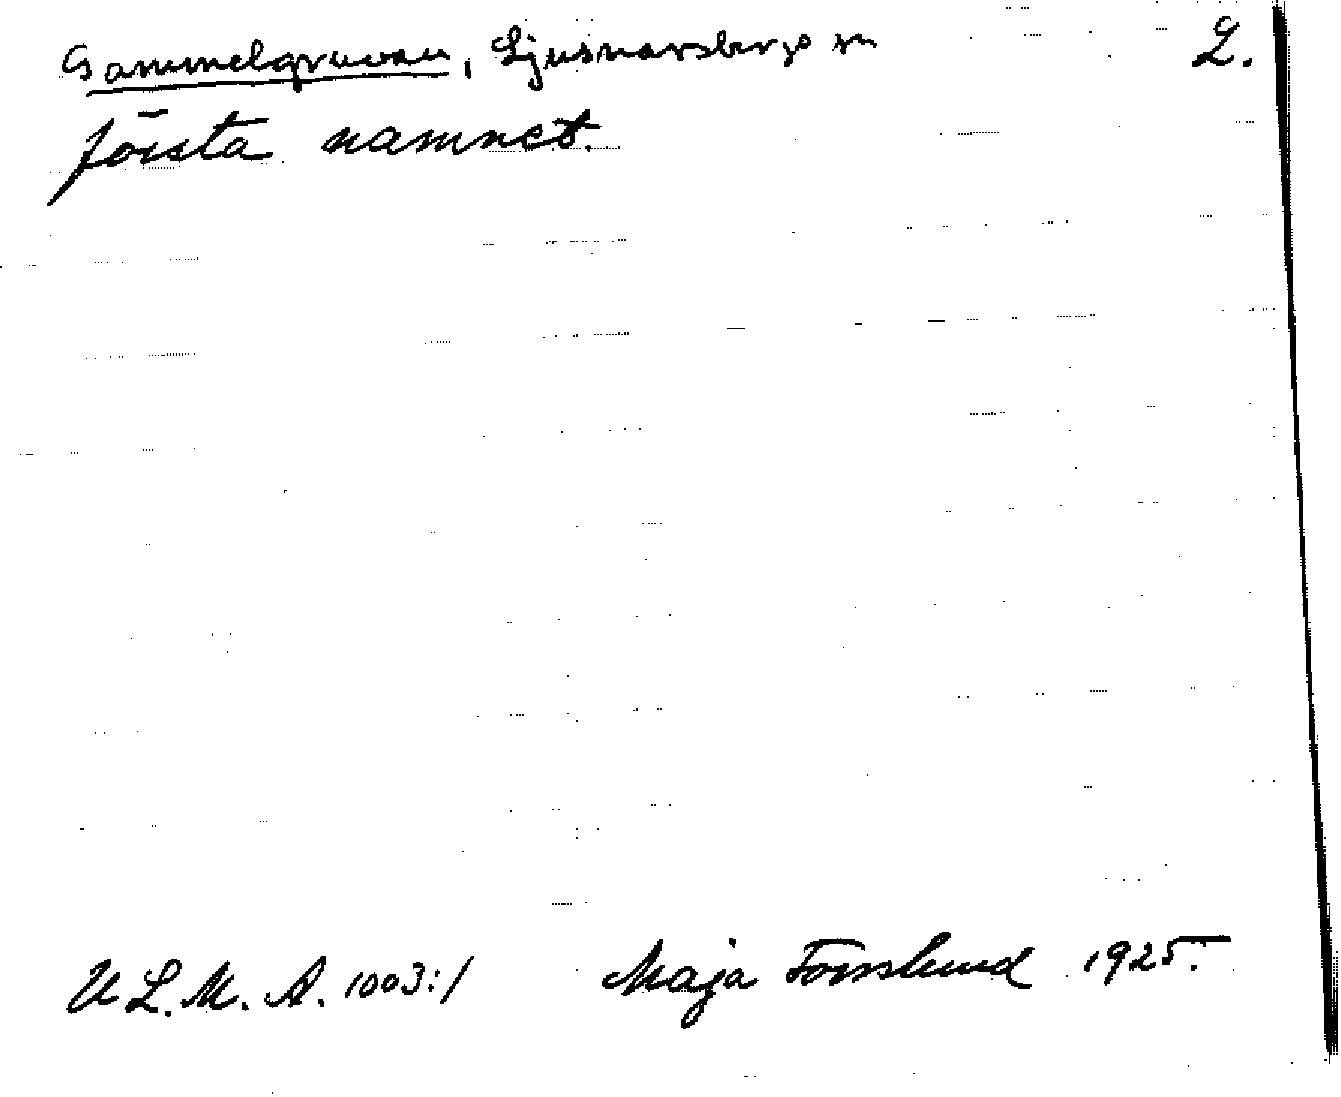 Gammelgruvan, Ljusnarsbergs sn 2.
första namnet.
U L. M. A. 1003:1 Maja Forslund 1925.